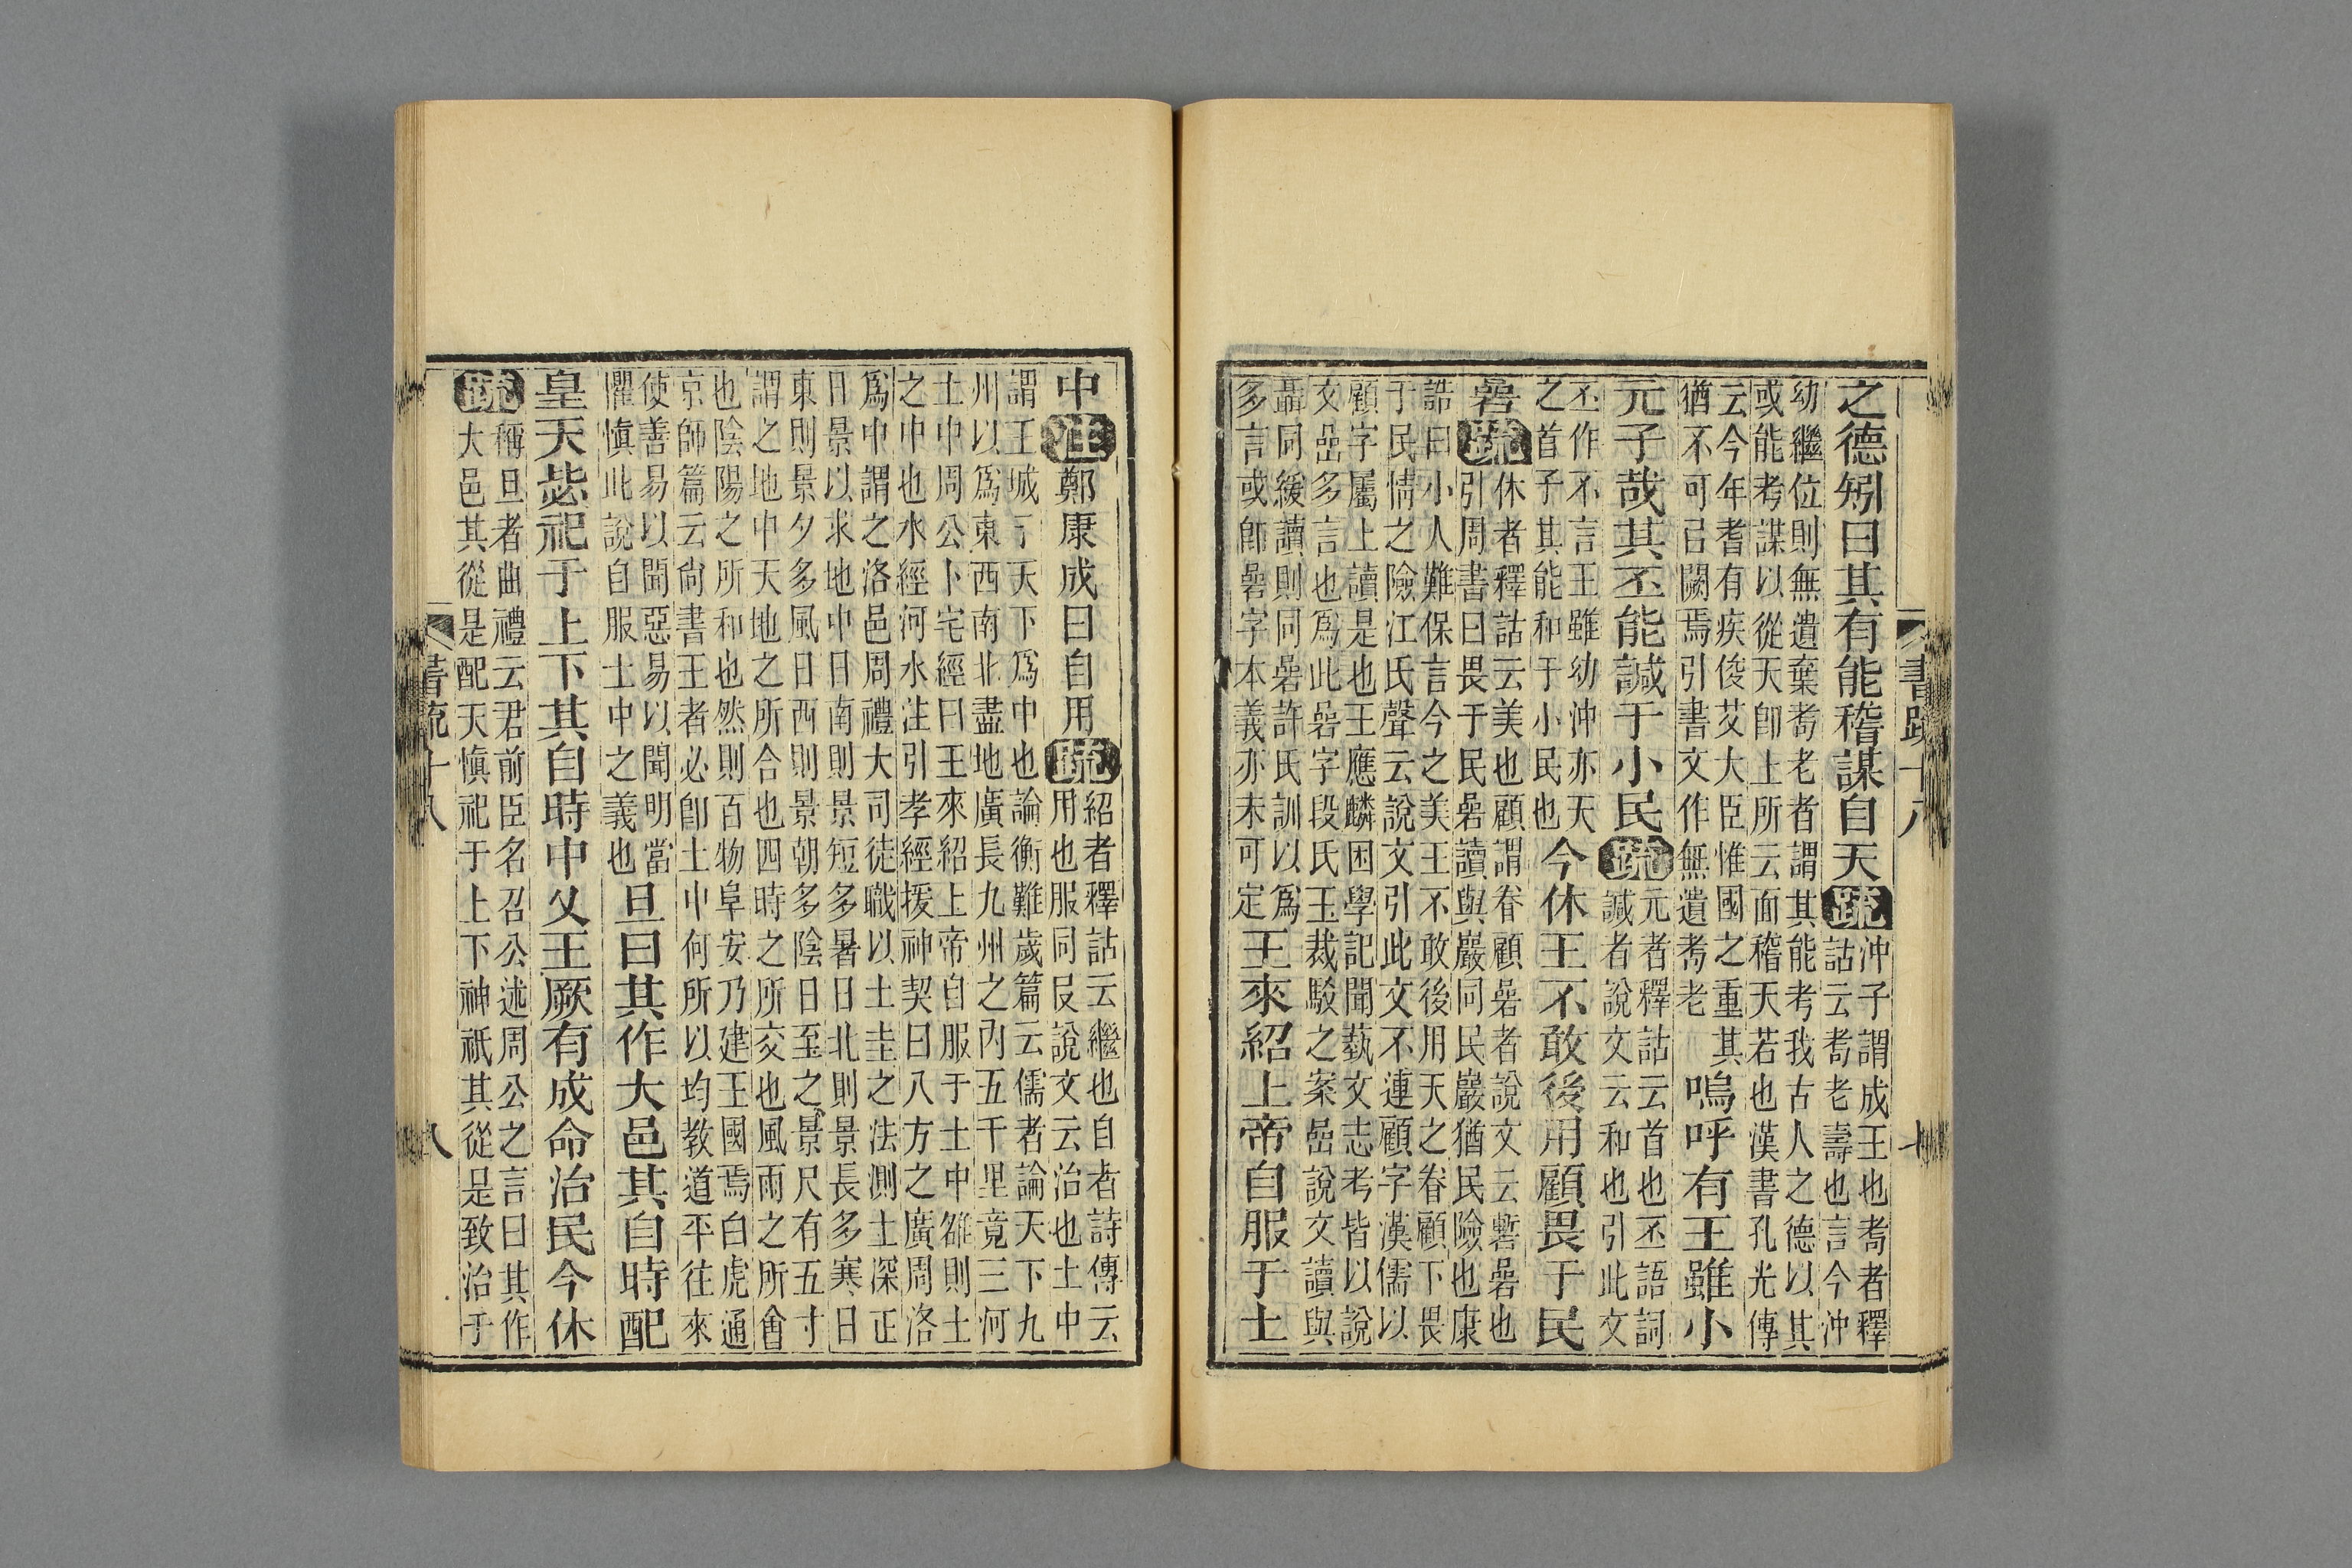 書疏十八
七
之德矧曰其有能稽謀自天疏
沖子謂成王也耇者釋
詁云耇老壽也言今沖
幼繼位則無遺棄耇老者謂其能考我古人之德以其
或能考謀以從天卽上所云面稽天若也漢書孔光傳
云今年耆有疾俊艾大臣惟國之重其
猶不可㠯闕焉引書文作無遺耇老
嗚呼有王雖小
元子哉其丕能諴于小民疏
元者釋詁云首也丕語詞
諴者說文云和也引此文
丕作不言王雖幼沖亦天
之首子其能和于小民也
今休王不敢後用顧畏于民
碞疏
休者釋詁云美也顧謂眷顧碞者說文云暫碞也
引周書曰畏于民碞讀與巖同民巖猶民險也康
誥曰小人難保言今之美王不敢後用天之眷顧下畏
于民情之險江氏聲云說文引此文不連顧字漢儒以
顧字屬上讀是也王應麟困學記聞藝文志考皆以說
文嵒多言也爲此碞字段氏玉裁駁之案嵒說文讀與
聶同緩讀則同碞許氏訓以爲
多言或卽碞字本義亦未可定
王來紹上帝自服于土
中注鄭康成曰自用疏
紹者釋詁云繼也自者詩傳云
用也服同𠬝說文云治也土中
謂王城于天下爲中也論衡難歲篇云儒者論天下九
州以爲東西南北盡地廣長九州之內五千里竟三河
土中周公卜宅經曰王來紹上帝自服于土中雒則土
之中也水經河水注引孝經援神契曰八方之廣周洛
爲中謂之洛邑周禮大司徒職以土圭之法測土深正
日景以求地中日南則景短多暑日北則景長多寒日
東則景夕多風日西則景朝多陰日至之景尺有五寸
謂之地中天地之所合也四時之所交也風雨之所會
也陰陽之所和也然則百物阜安乃建王國焉白虎通
京師篇云尙書王者必卽土中何所以均教道平往來
使善易以聞惡易以聞明當
懼愼此說自服土中之義也
旦曰其作大邑其自時配
皇天毖祀于上下其自時中乂王厥有成命治民今休
疏
稱旦者曲禮云君前臣名召公述周公之言曰其作
大邑其從是配天愼祀于上下神祇其從是致治于
書疏十八
八